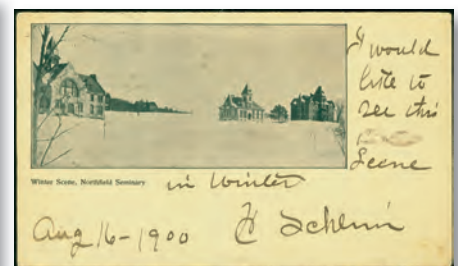 I would
like to
see this
Scene
Winter Scene, Northfield Seminary
in Winter
Aug 16-1900